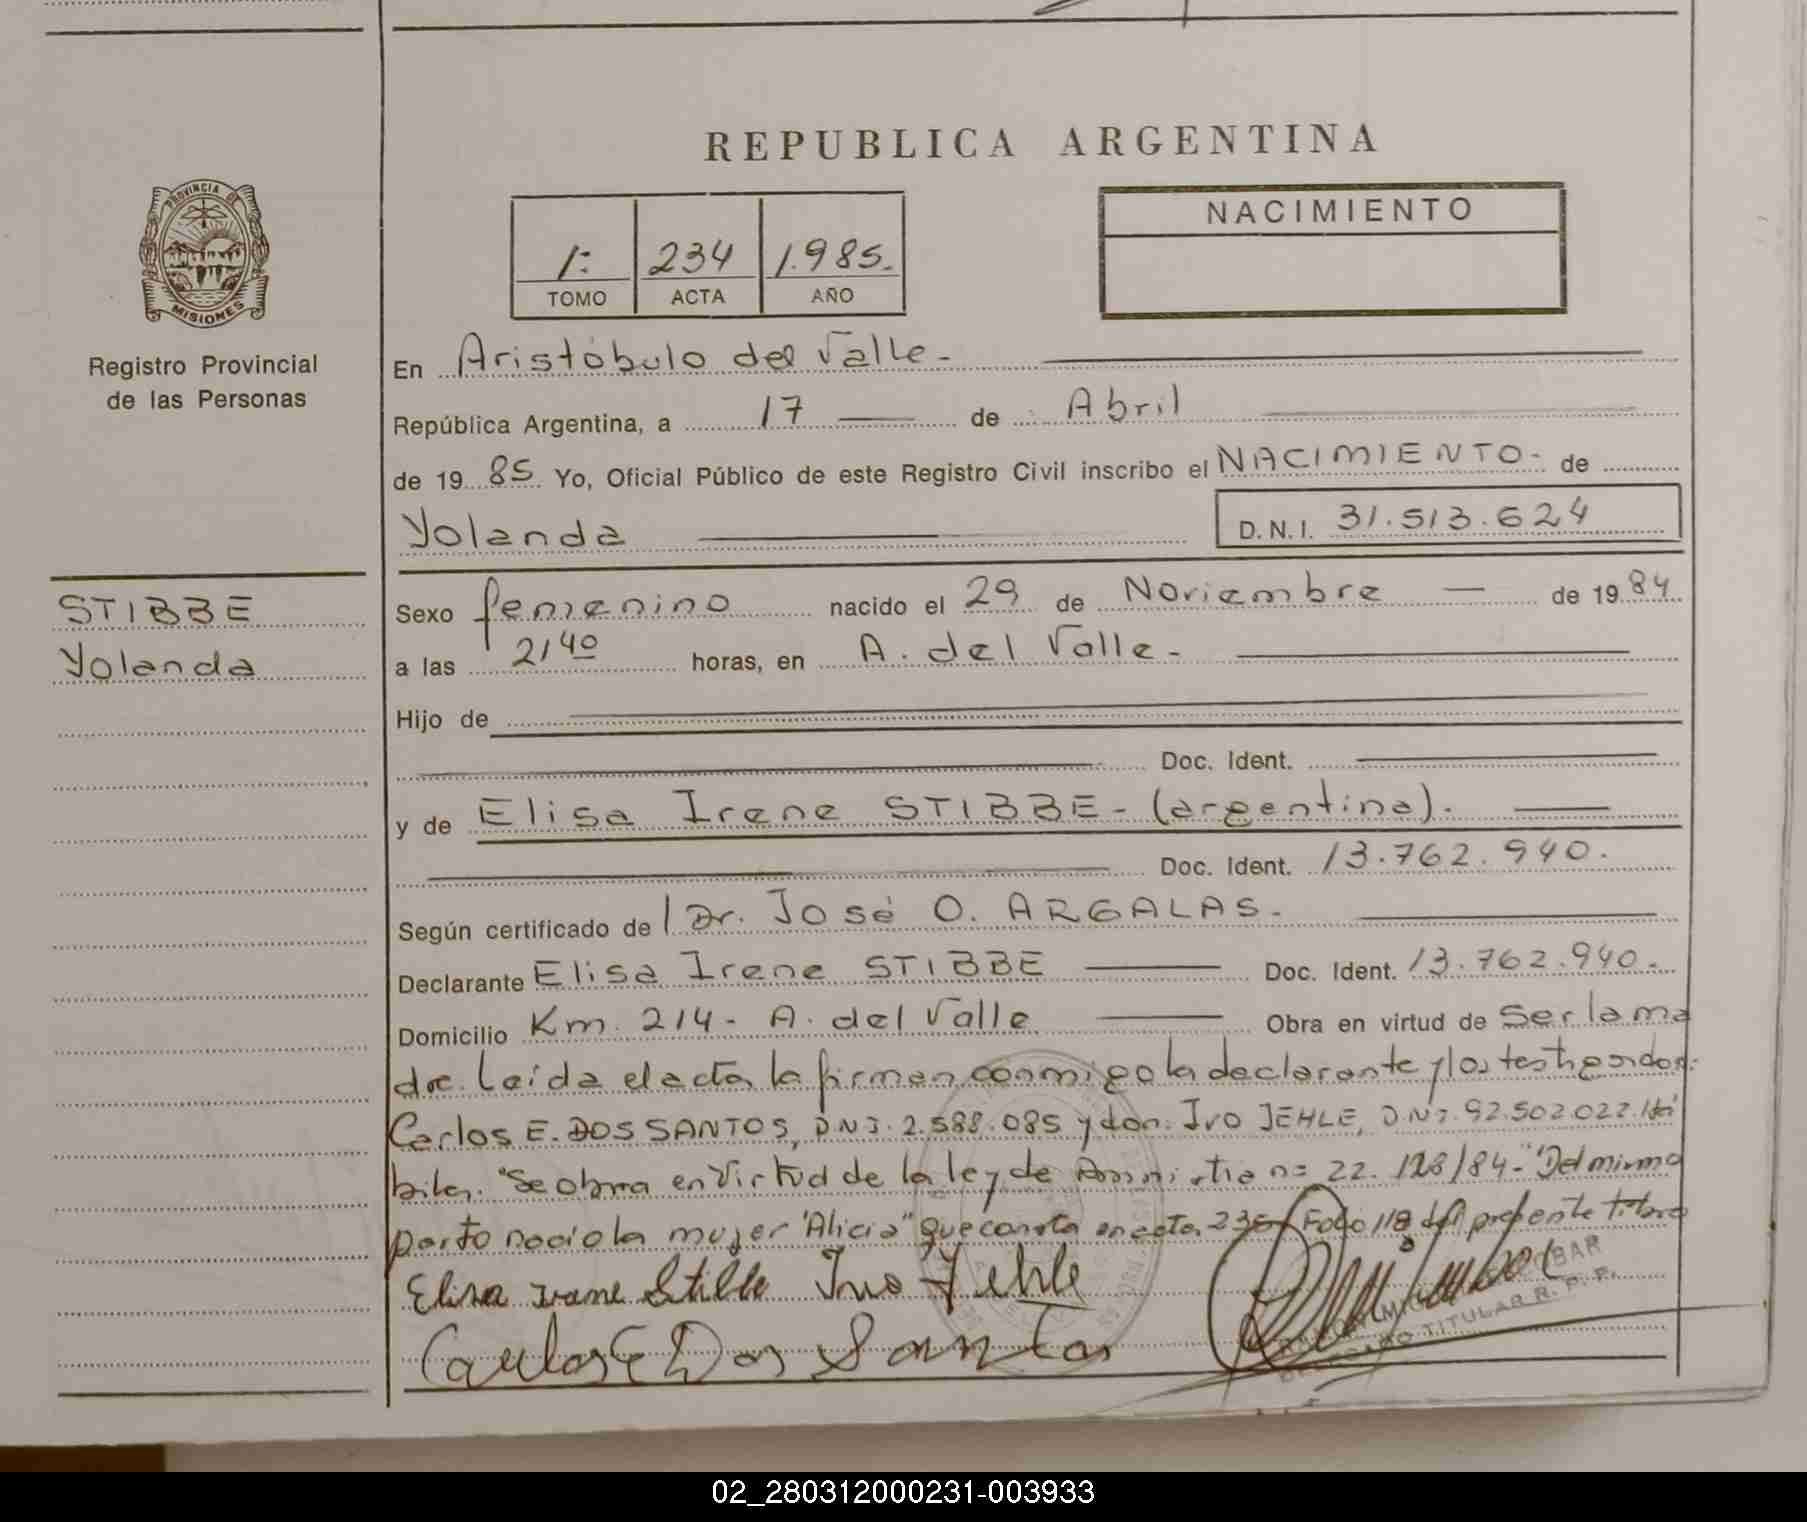 REPUBLICA ARGENTINA
PROVINCIA DE
MISIONES
Registro Provincial
de las Personas
1: 234 1.985.
TOMO ACTA AÑO
NACIMIENTO
En Aristóbulo del Valle.-
República Argentina, a 17 de Abril
de 19 85 Yo, Oficial Público de este Registro Civil inscribo el NACIMIENTO- de
Yolanda D.N.I. 31.513.624
STIBBE
Yolanda
Sexo femenino nacido el 29 de Noviembre de 19 84
a las 21 40 horas, en A. del Valle.-
Hijo de
Doc. Ident.
y de Elisa Irene STIBBE- (argentina).
Doc. Ident. 13.762.940.
Según certificado de l Dr. José O. ARGALAS.
Declarante Elisa Irene STIBBE Doc. Ident. 13.762.940.
Domicilio Km. 214- A. del Valle Obra en virtud de Ser la ma
dre. Leída el acta la firman conmigo la declarante y los testigos don:
Carlos E. DOS SANTOS, D.N.I. 2.588.085 y don. Ivo JEHLE, D.N.I. 92.502.022. Há
biles. "Se obra en Virtud de la ley de Amnistia n= 22. 128/84-" "Del mismo
parto nació la mujer "Alicia" que consta en acta 235 Folio 118 del presente
Elisa Irene Stibbe Ivo Jehle
Carlos E Dos Santos
TITULAR R. P. P.
02_280312000231-003933